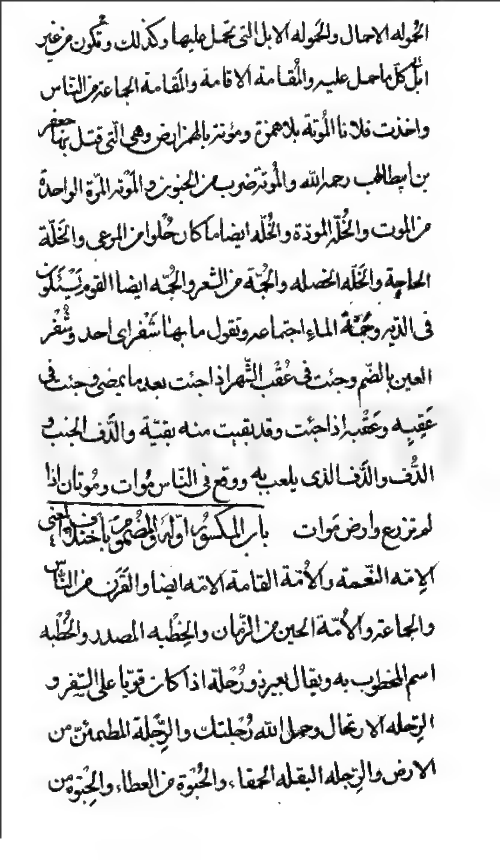 الحُموله الاحمال والحَموله الابل التى تحمل عليها وكذلك وتكون من غير
ابل كل ما حمل عليه والمُقامة الاقامة والمَقامة الجماعة من الناس
واخذت فلانا المُوتة بلا همزة ومؤتة بالهمز ارض وهى التى قتل بها جعفر
بن ابيطالب رحمه الله والمُوتة ضرب من الجنون والمَوتة المرّة الواحدة
من الموت والخُلّه المودّة والخُلّه ايضا ما كان حُلوا من المرعى والخَلّة
الحاجة والخَلّه الخصله والجُمّة من الشعر والجُمّه ايضا القوم يَسْئلون
فى الدّيه وجَمّة الماء اجتماعه وتقول ما بها شَفْر اى احد وشُفْر
العين بالضّم وجئت فى عُقْب الشّهر اذا جئت بعد ما يمضى وجئت فى
عَقِبِه وعَقْبه اذا جئت وقد بقيت منه بقيّة والدَّف الجنب و
الدُّف والدَّف الذى يلعب به ووقع فى النّاس مُوات ومُوتان اذا
لم تزرع وارض مَوات باب المكسور اوّله والمضموم باختلاف المعنى
الاِمّه النّعمة والاُمّة القامة الامّه ايضا والقَرن من النّاس
والجماعة والاُمّة الحين من الزّمان والخِطْبه المصدر والخُطْبه
اسم المخطوب به ويقال بعير ذو رُحْلة اذا كان قويّا على السّفر و
الرِحله الارتحال وحمل الله رُجلتك والرِّجلة المطمئنّ من
الارض والرِّجله البقله الحمقاء والحُبْوَة من العطاء والحِبْوَة من